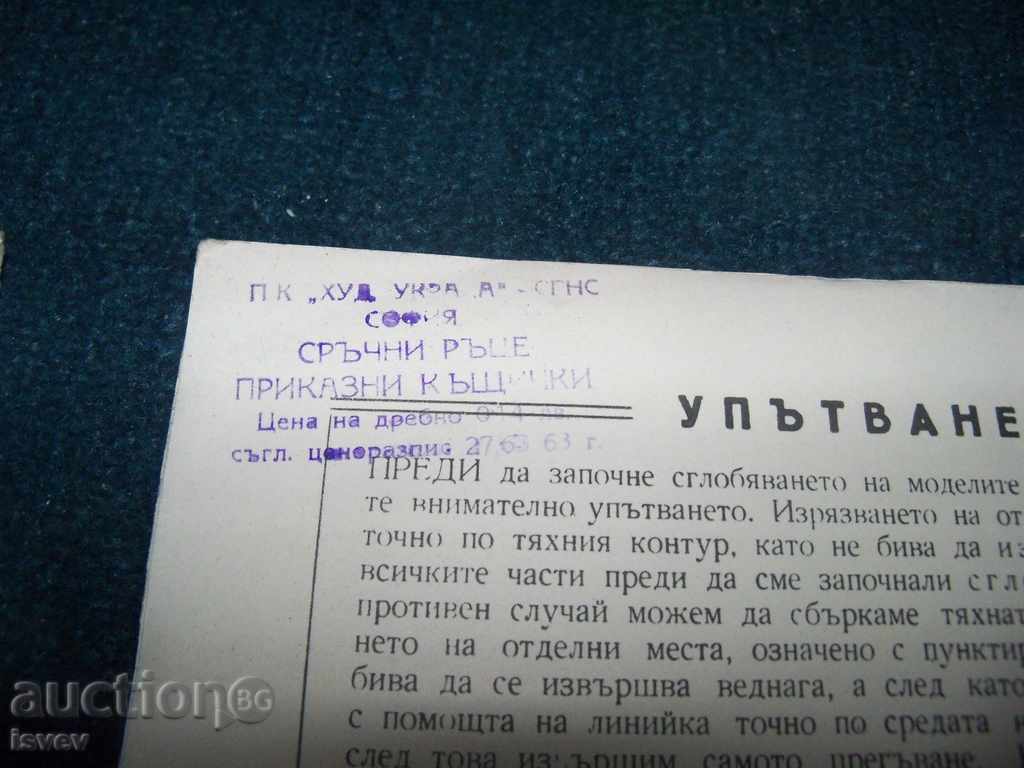 ПК „ХУД УКРА А" - СГНС
СОФИЯ
СРЪЧНИ РЪЦЕ
ПРИКАЗНИ КЪЩИЧКИ
Цена на дребно 0·14 лв.
съгл. ценоразпис 63 г.
УПЪТВАНЕ
ПРЕДИ да започне сглобяването на моделите
те внимателно упътването. Изрязването на от
точно по тяхния контур, като не бива да из
всичките части преди да сме започнали сгло
противен случай можем да сбъркаме тяхнат
нето на отделни места, означено с пунктир
бива да се извършва веднага, а след като
с помощта на линийка точно по средата н
след това извършим самото прегъване.
auctionBG
isvev